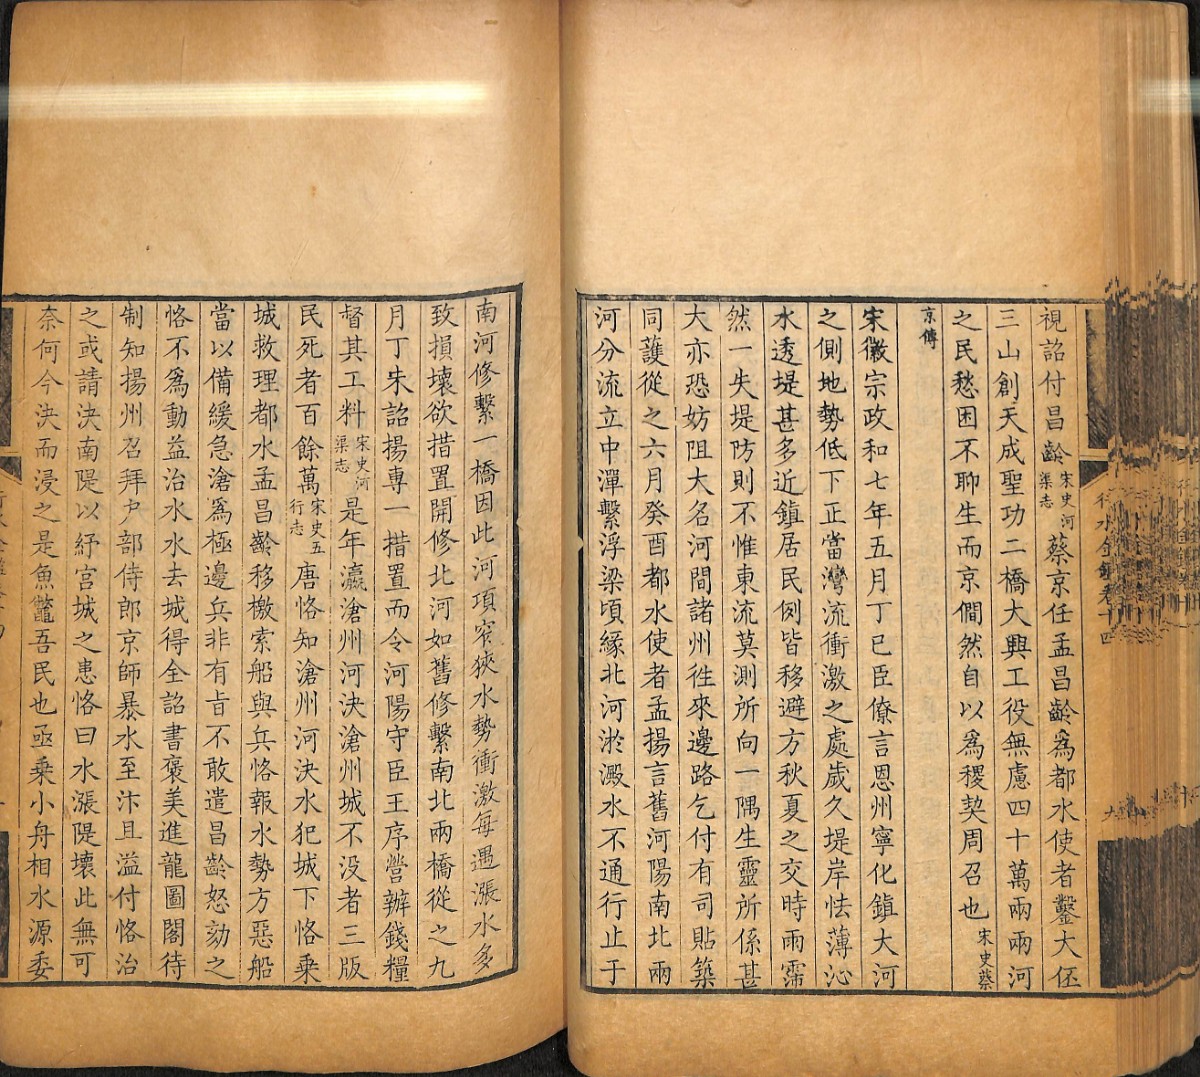 視詔付昌齡宋史河渠志蔡京任孟昌齡為都水使者鑿大伾
三山創天成聖功二橋大興工役無慮四十萬兩兩河
之民愁困不聊生而京僴然自以為稷契周召也宋史蔡
京傳
宋徽宗政和七年五月丁巳臣僚言恩州寧化鎮大河
之側地勢低下正當灣流衝激之處歲久堤岸怯薄沁
水透堤甚多近鎮居民例皆移避方秋夏之交時雨霈
然一失堤防則不惟東流莫測所向一隅生靈所係甚
大亦恐妨阻大名河間諸州徃來邊路乞付有司貼築
同護從之六月癸酉都水使者孟揚言舊河陽南北兩
河分流立中潬繫浮梁頃緣北河淤澱水不通行止于
南河修繫一橋因此河項窄狹水勢衝激每遇漲水多
致損壞欲措置開修北河如舊修繫南北兩橋從之九
月丁未詔揚專一措置而令河陽守臣王序營辦錢糧
督其工料宋史河渠志是年瀛滄州河決滄州城不没者三版
民死者百餘萬宋史五行志唐恪知滄州河決水犯城下恪乘
城救理都水孟昌齡移檄索船與兵恪報水勢方惡船
當以備緩急滄為極邊兵非有旨不敢遣昌齡怒劾之
恪不為動益治水水去城得全詔書褒美進龍圖閣待
制知揚州召拜户部侍郎京師暴水至汴且溢付恪治
之或請決南隄以紓宮城之患恪曰水漲隄壞此無可
奈何今決而浸之是魚鼈吾民也亟乘小舟相水源委